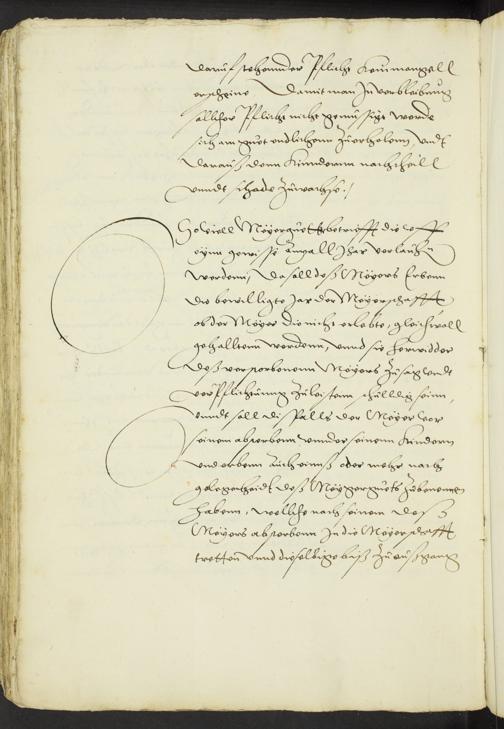 darauf stehennder Pflicht kein mangell
erscheine. Damit man In verbleibung
sollicher Pflicht nicht genüssigt werde
sich am guet endtlichenn Zuerholenn, undt
darauß denn Kinnderenn nachtheill
unndt schade Zuwachse./
Soviell Meyerguett betrifft die uff
eynn gewisse Anzall Jhar verlauhen
werdenn, da soll deß Meyers Erbenn
die bewilligte Jar der Meyerschafft
ob der Meyer die nicht erlebte, gleichwoll
gehalltenn werdenn, unnd sie herwidder
deß verstorbenenn Meyers Zusag undt
verpflichtung Zuleisten schuldig seinn,
unndt soll diß falls der Meyer vor
seinem absterbenn unnder seinenn Kindern
und erbenn auch einns oder mehr nach
gelegenheidt deß Meyerguets Zubenennen
habenn, welliche nach seinem deß
Meyers absterbenn In die Meyerschafft
tretten unnd dieselbige biß Zu außgang